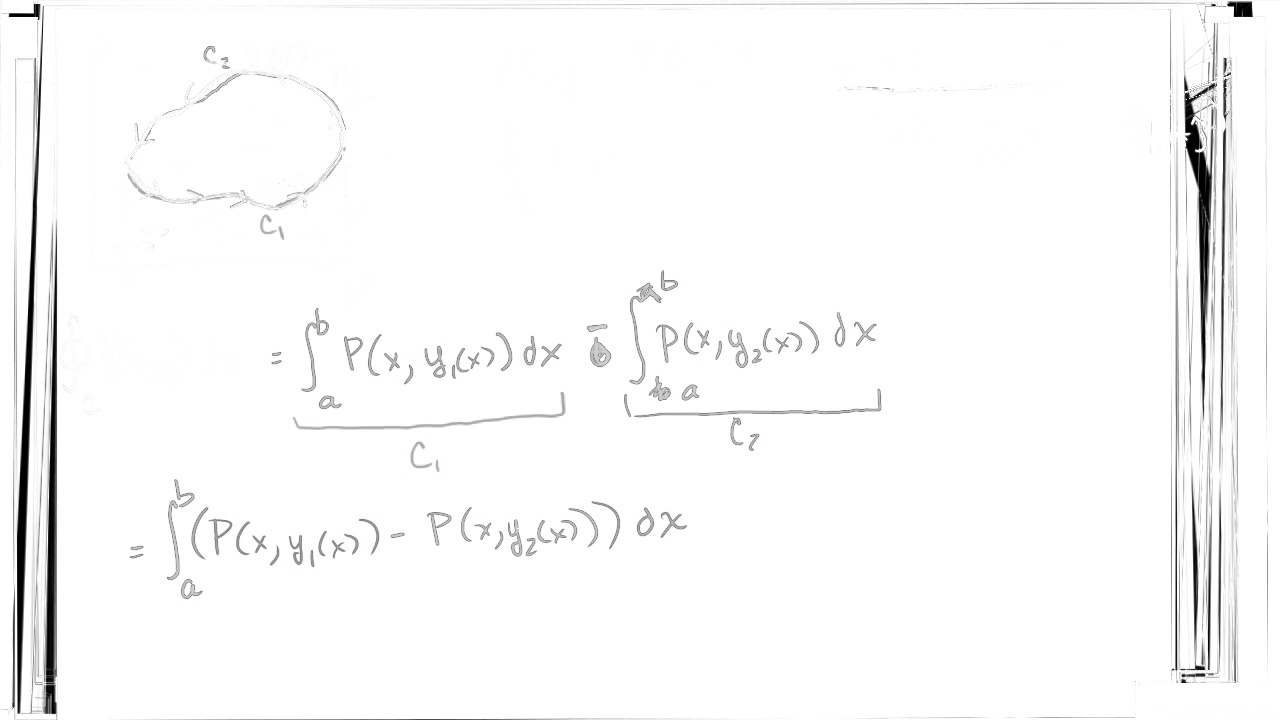 C₂
C₁
= ∫ₐᵇ P(x, y₁(x)) dx - ∫ₐᵇ P(x, y₂(x)) dx
C₁ C₂
= ∫ₐᵇ (P(x, y₁(x)) - P(x, y₂(x))) dx